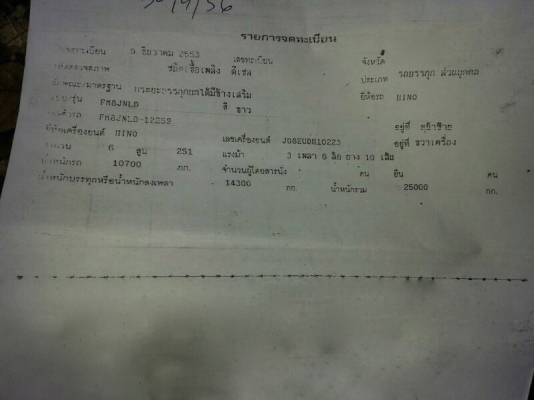 30/9/56
รายการจดทะเบียน
วันจดทะเบียน 9 ธันวาคม 2553 เลขทะเบียน จังหวัด
ชนิดเชื้อเพลิง ดีเซล ประเภท รถบรรทุก ส่วนบุคคล
ลักษณะ/มาตรฐาน กระบะบรรทุกยกได้มีข้างเสริม ยี่ห้อรถ HINO
แบบ/รุ่น FM8JNLD สี ขาว
FM8JNLD-12259 อยู่ที่
ยี่ห้อเครื่องยนต์ HINO เลขเครื่องยนต์ J08EUDH10223 อยู่ที่ ขวาเครื่อง
จำนวน 6 สูบ 251 แรงม้า 3 เพลา 6 ล้อ ยาง 10 เส้น
น้ำหนักรถ 10700 กก. จำนวนผู้โดยสารนั่ง คน ยืน คน
น้ำหนักบรรทุกหรือน้ำหนักลงเพลา 14300 กก. น้ำหนักรวม 25000 กก.